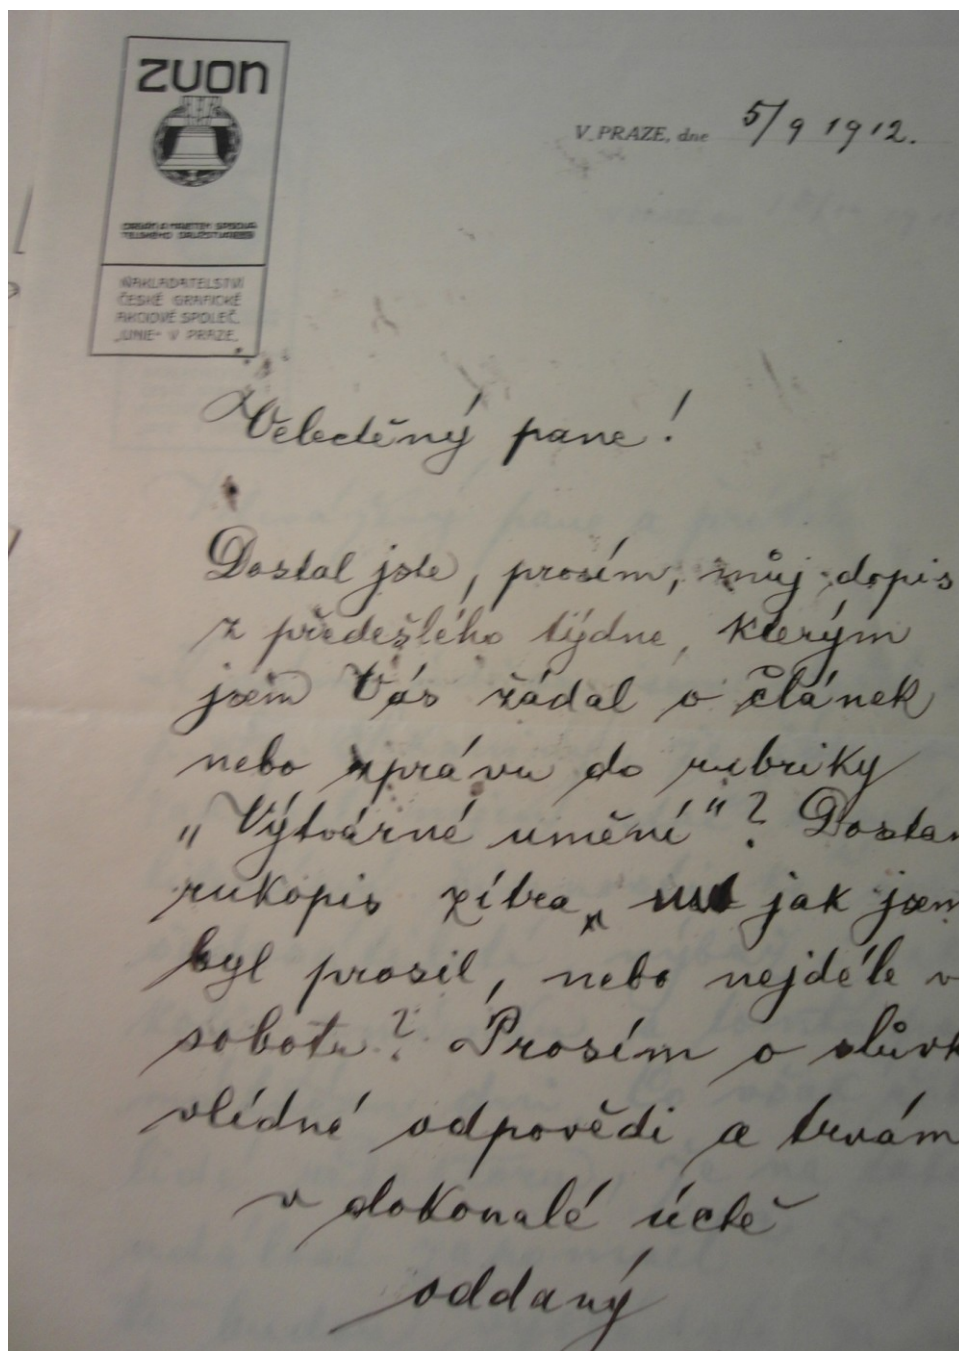 ZVON
V PRAZE, dne 5/9 1912.
NAKLADATELSTVÍ
ČESKÉ GRAFICKÉ
AKCIOVÉ SPOLEČ.
„UNIE“ V PRAZE.
Velectěný pane!
Dostal jste, prosím, můj dopis
z předešlého týdne, kterým
jsem Vás žádal o článek
nebo zprávu do rubriky
„Výtvarné umění“? Dostan
rukopis zítra, jak jsem
byl prosil, nebo nejdéle v
sobotu? Prosím o slůvk
vlídné odpovědi a trvám
v dokonalé úctě
oddaný